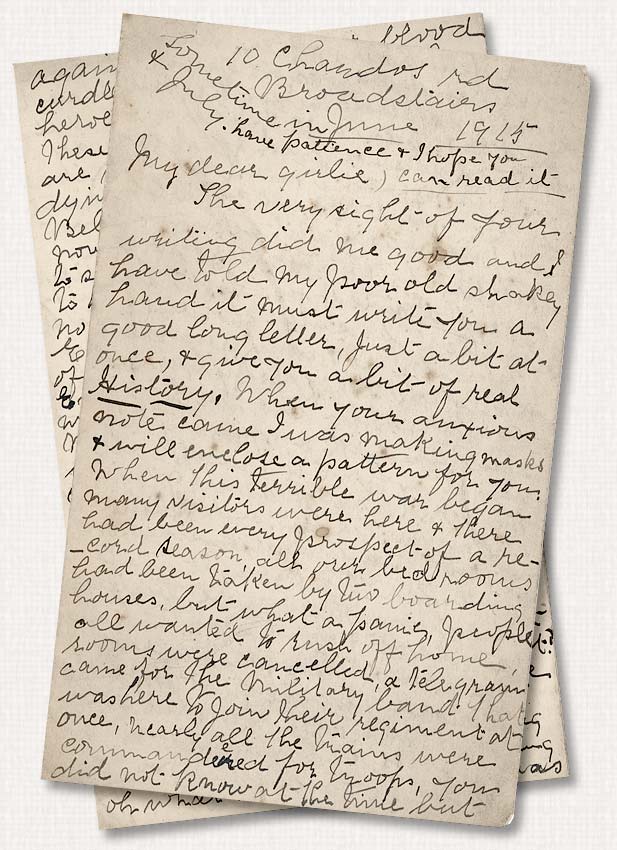 10 Chandos rd
Broadstairs
Sometime in June 1915
& July. have patience & I hope you
can read it
My dear girlie,
The very sight of your
writing did me good and I
have told my poor old shakey
hand it must write you a
good long letter, just a bit at
once, & give you a bit of real
History. When your anxious
note came I was making masks
& will enclose a pattern for you.
When this terrible war began
many visitors were here & there
had been every prospect of a re-
-cord season, all our bed rooms
had been taken by two boarding
houses, but what a panic, people
all wanted to rush off home,
rooms were cancelled, a telegram
came for the military band that
was here to join their regiment at
once, nearly all the trains were
commandeered for troops, you
did not know at the time but
blood
again
curdle
heroe
These
are
dyin
Bel
now
to s
to
no
of
oh what